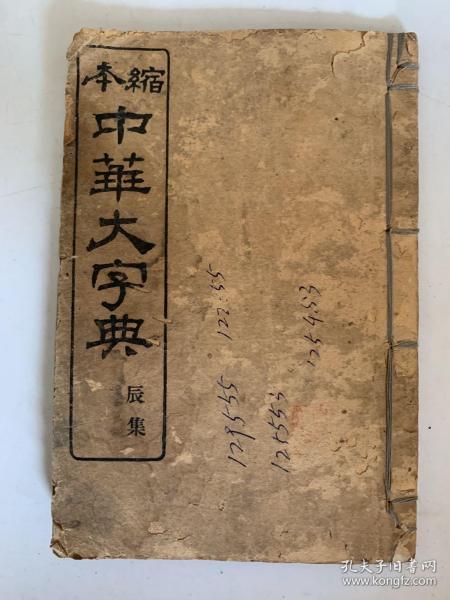 縮本
中華大字典
辰集
122.55
1254.53
129555
125553
孔夫子旧书网
www.kongfz.com